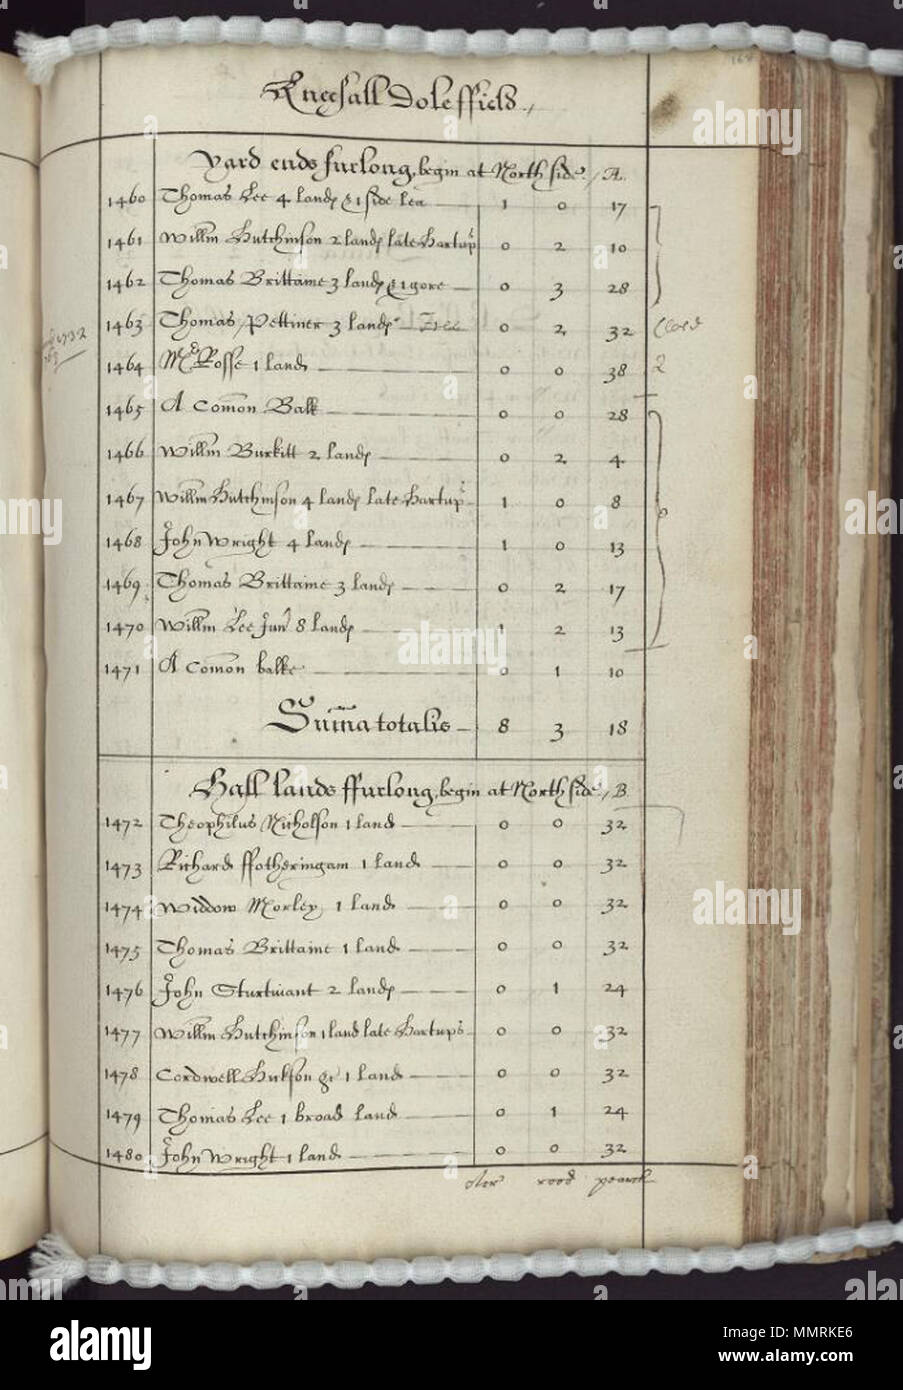 Kneesall Dole ffield.
Yard ends furlong, begin at North side. A.
1460 Thomas Lee 4 lands & 1 side lea 1 0 17
1461 Willm Hutchinson 2 lands late Hartups 0 2 10
1462 Thomas Brittaine 3 lands & 1 gore 0 3 28
1463 Thomas Pettiner 3 lands Free 0 2 32
1464 Md Rosse 1 land 0 0 38
2
1465 A Comon Balk 0 0 28
1466 Willm Burkitt 2 lands 0 2 4
1467 Willm Hutchinson 4 lands late Hartups 1 0 8
1468 John Wright 4 lands 1 0 13
1469 Thomas Brittaine 3 lands 0 2 17
1470 Willm Lee Junr 8 lands 1 2 13
1471 A Comon balke 0 1 10
Suma totalis 8 3 18
Hall lands ffurlong, begin at North side. B
1472 Theophilus Nicholson 1 land 0 0 32
1473 Richard ffotheringam 1 land 0 0 32
1474 Widdow Morley 1 land 0 0 32
1475 Thomas Brittaine 1 land 0 0 32
1476 John Sturtivant 2 lands 0 1 24
1477 Willm Hutchinson 1 land late Hartups 0 0 32
1478 Cordwell Hukson gr 1 land 0 0 32
1479 Thomas Lee 1 broad land 0 1 24
1480 John Wright 1 land 0 0 32
rood pearch
alamy
Image ID: MMRKE6
www.alamy.com